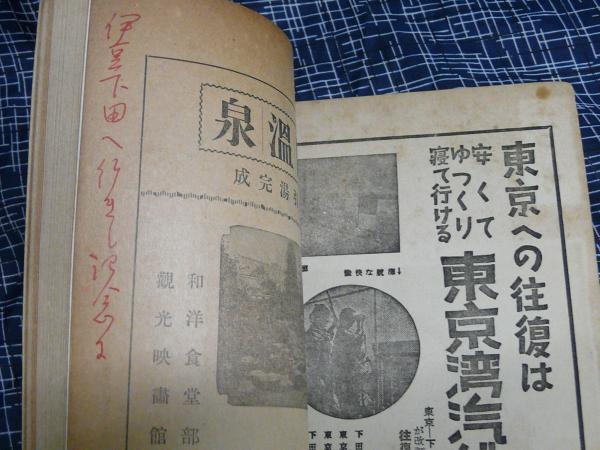 東京への往復は
安くて
ゆつくり
寝て行ける
東京湾汽
愉快な航海↓
東京—下
が改
往復
下田
東京
東京
下田
温泉
湯完成
和洋食堂部
觀光映畫館
伊豆下田へ行きし記念に